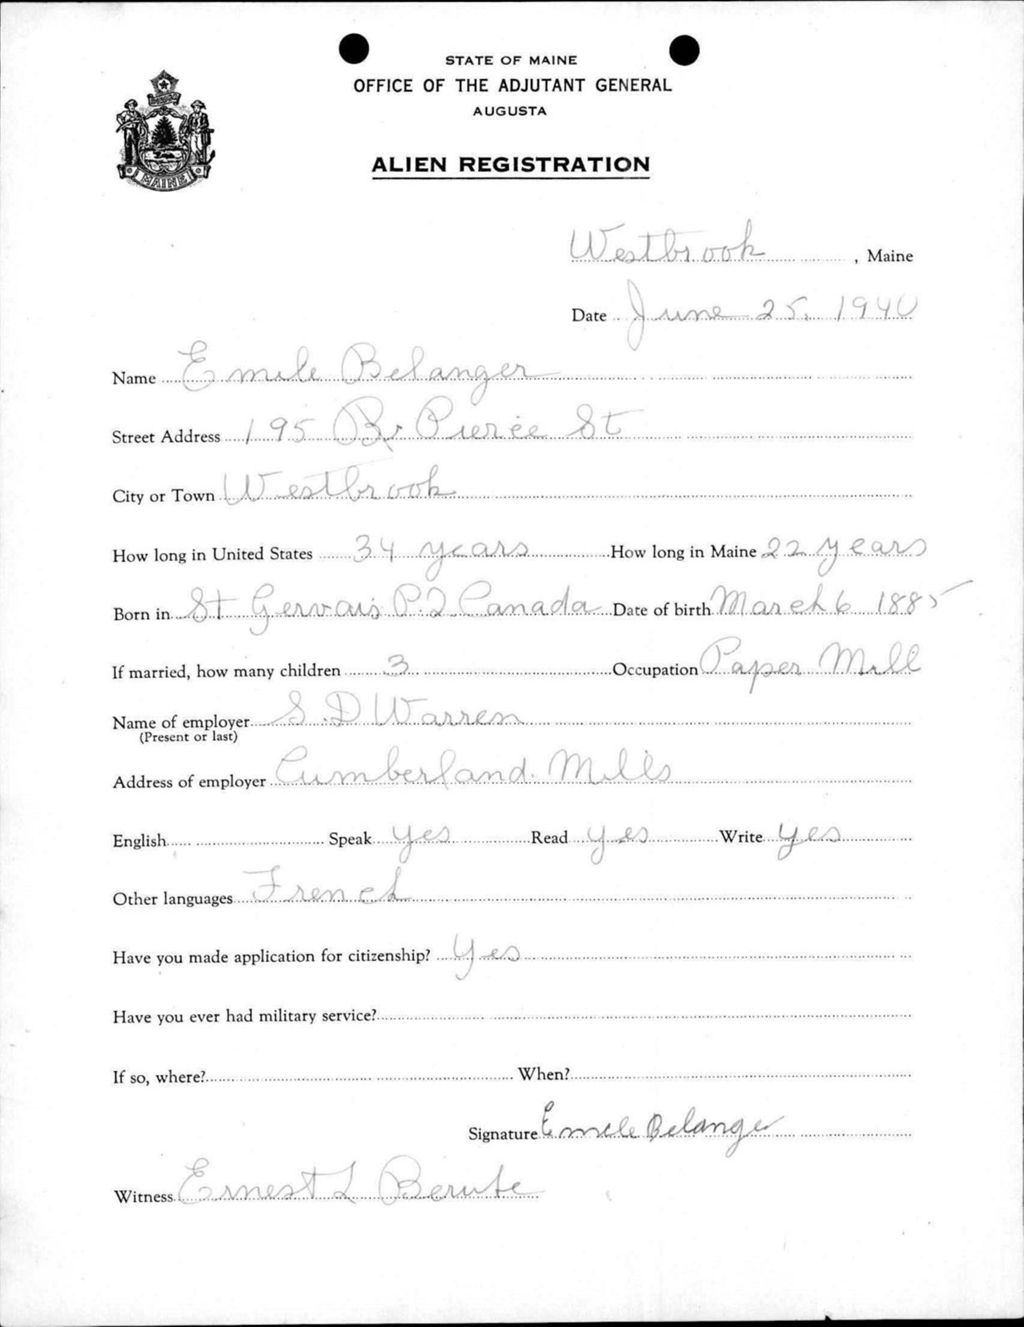 STATE OF MAINE
OFFICE OF THE ADJUTANT GENERAL
AUGUSTA
ALIEN REGISTRATION
MAINE
Westbrook, Maine
Date June 25, 1940
Name Emile Belanger
Street Address 195 Br Pierce St
City or Town Westbrook
How long in United States 34 years How long in Maine 22 years
Born in St Gervais P.Q Canada Date of birth March 6 1885
If married, how many children 3 Occupation Paper Mill
Name of employer S. D Warren
(Present or last)
Address of employer Cumberland Mills
English Speak yes Read yes Write yes
Other languages French
Have you made application for citizenship? Yes
Have you ever had military service?
If so, where? When?
Signature Emile Belanger
Witness Ernest L